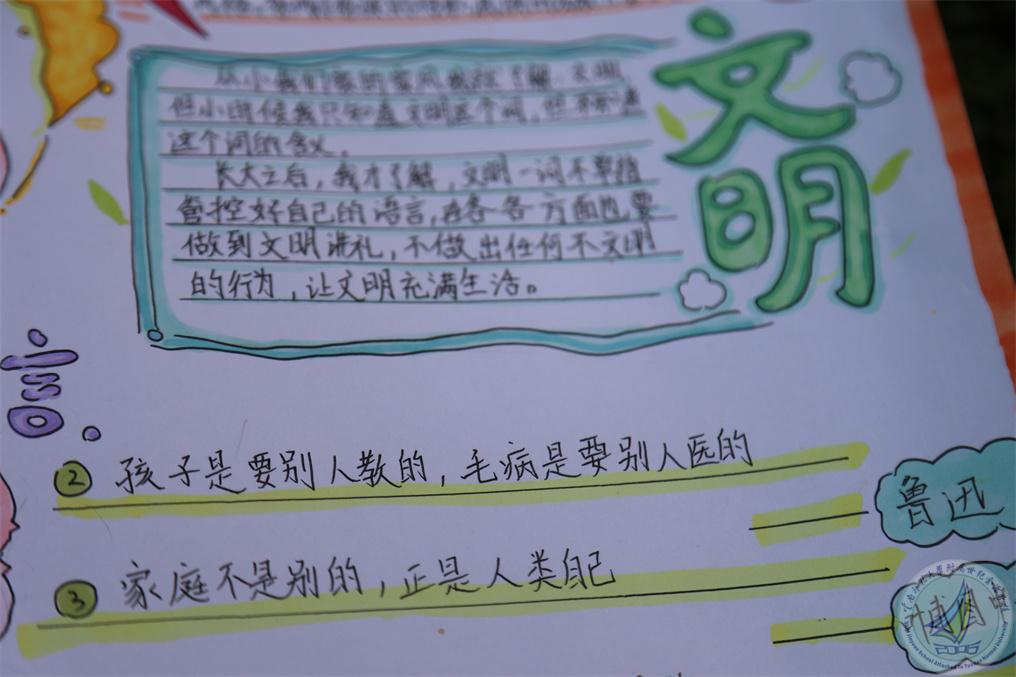 从小我们家的家风就是了解、文明，
但小时候我只知道文明这个词，但不知道
这个词的含义。
长大之后，我才了解，文明一词不单指
管控好自己的语言，在各各方面也要
做到文明讲礼，不做出任何不文明
的行为，让文明充满生活。
文明
② 孩子是要别人教的，毛病是要别人医的
鲁迅
③ 家庭不是别的，正是人类自己